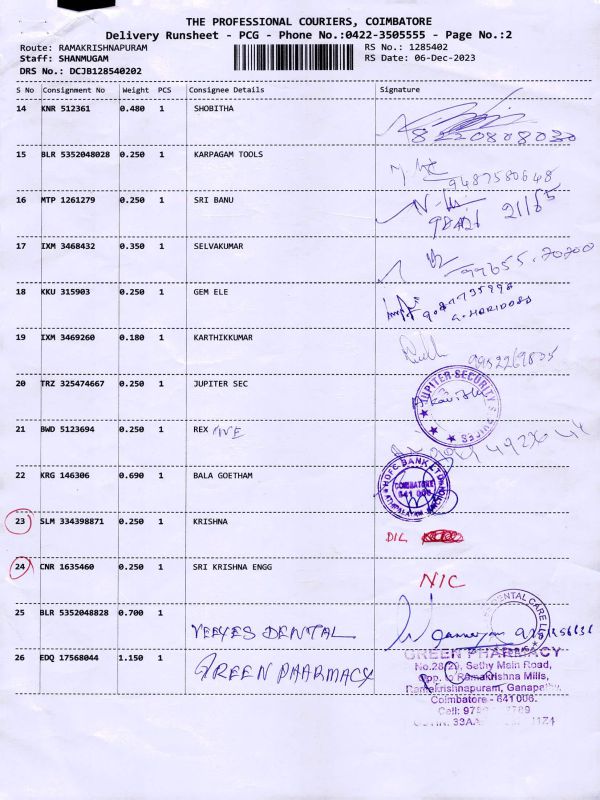 THE PROFESSIONAL COURIERS, COIMBATORE
Delivery Runsheet - PCG - Phone No.:0422-3505555 - Page No.:2
Route: RAMAKRISHNAPURAM RS No.: 1285402
Staff: SHANMUGAM RS Date: 06-Dec-2023
DRS No.: DCJB128540202
S No Consignment No Weight PCS Consignee Details Signature
14 KNR 512361 0.480 1 SHOBITHA
8220808030
15 BLR 5352048028 0.250 1 KARPAGAM TOOLS
9487580648
16 MTP 1261279 0.250 1 SRI BANU
17 IXM 3468432 0.350 1 SELVAKUMAR
99655.70200
18 KKU 315903 0.250 1 GEM ELE
G. HARIDOSS
19 IXM 3469260 0.180 1 KARTHIKKUMAR
9952269835
20 TRZ 325474667 0.250 1 JUPITER SEC
JUPITER SECURITY
21 BWD 5123694 0.250 1 REX FIVE
22 KRG 146306 0.690 1 BALA GOETHAM
HDFC BANK LTD
COIMBATORE
641 006
23 SLM 334398871 0.250 1 KRISHNA
DIL
24 CNR 1635460 0.250 1 SRI KRISHNA ENGG
NIC
25 BLR 5352048828 0.700 1 VEEYES DENTAL
DENTAL CARE
26 EDQ 17568044 1.150 1 GREEN PHARMACY
GREEN PHARMACY
No.28/29, Sathy Main Road,
Opp. to Ramakrishna Mills,
Ramakrishnapuram, Ganapathy,
Coimbatore - 641 006.
Cell:
33AA